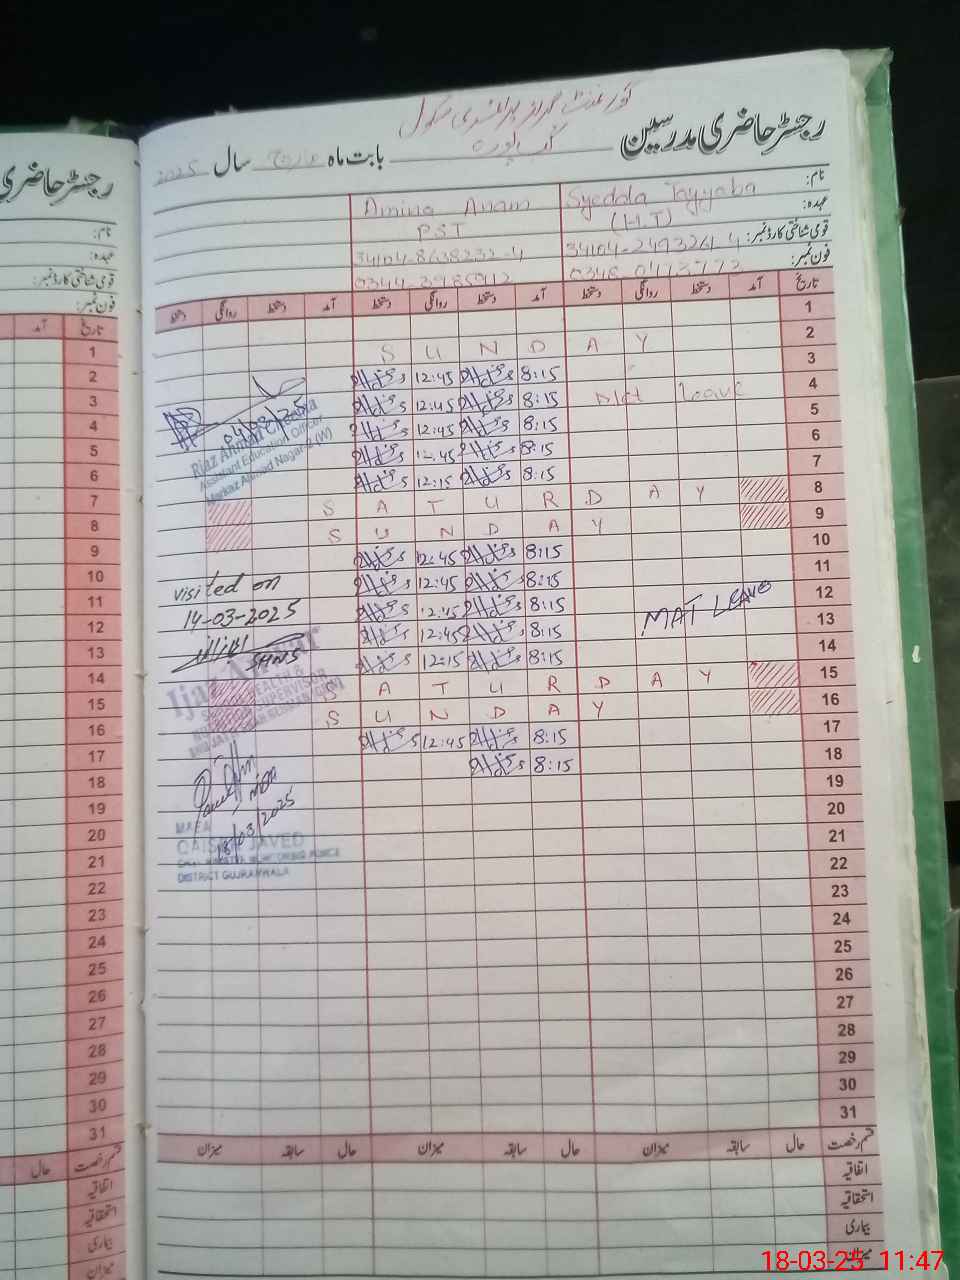 گورنمنٹ گرلز پرائمری سکول
رجسٹر حاضری مدرسین
بابت ماہ مارچ سال 2025
نام: Syedda Tayyaba Amina Anam
عہدہ: (H.T) PST
قومی شناختی کارڈ نمبر: 34104-2493261-4 34104-8638232-4
فون نمبر: 0346-0473772 0344-3985912
تاریخ آمد دستخط روانگی دستخط آمد دستخط روانگی دستخط آمد دستخط روانگی دستخط
1
2 SUNDAY
3 8:15 12:45
4 8:15 12:45 Leave
5 8:15 12:45
6 8:15 12:45
7 8:15 12:15
8 SATURDAY
9 SUNDAY
10 8:15 12:45
11 8:15 12:45
12 8:15 12:45
13 8:15 12:45 MAT LEAVE
14 8:15 12:15
15 SATURDAY
16 SUNDAY
17 8:15 12:45
18 8:15
19
20
21
22
23
24
25
26
27
28
29
30
31
قسم رخصت حال سابقہ میزان حال سابقہ میزان حال سابقہ میزان
اتفاقیہ
استحقاقیہ
بیماری
میزان
04/03/25
Riaz Ahmad
Assistant Education Officer
Markaz Ahmad Nagar-2 (W)
visited on
14-03-2025
SHNS
Ijaz Anwar
HEALTH &
SUPERVISOR
MEA
18/03/2025
MAEA
QAISER JAVED
DISTRICT GUJRANWALA
رجسٹر حاضری
نام:
عہدہ:
قومی شناختی کارڈ نمبر:
فون نمبر:
تاریخ آمد
1
2
3
4
5
6
7
8
9
10
11
12
13
14
15
16
17
18
19
20
21
22
23
24
25
26
27
28
29
30
31
قسم رخصت حال
اتفاقیہ
استحقاقیہ
بیماری
میزان
18-03-25 11:47